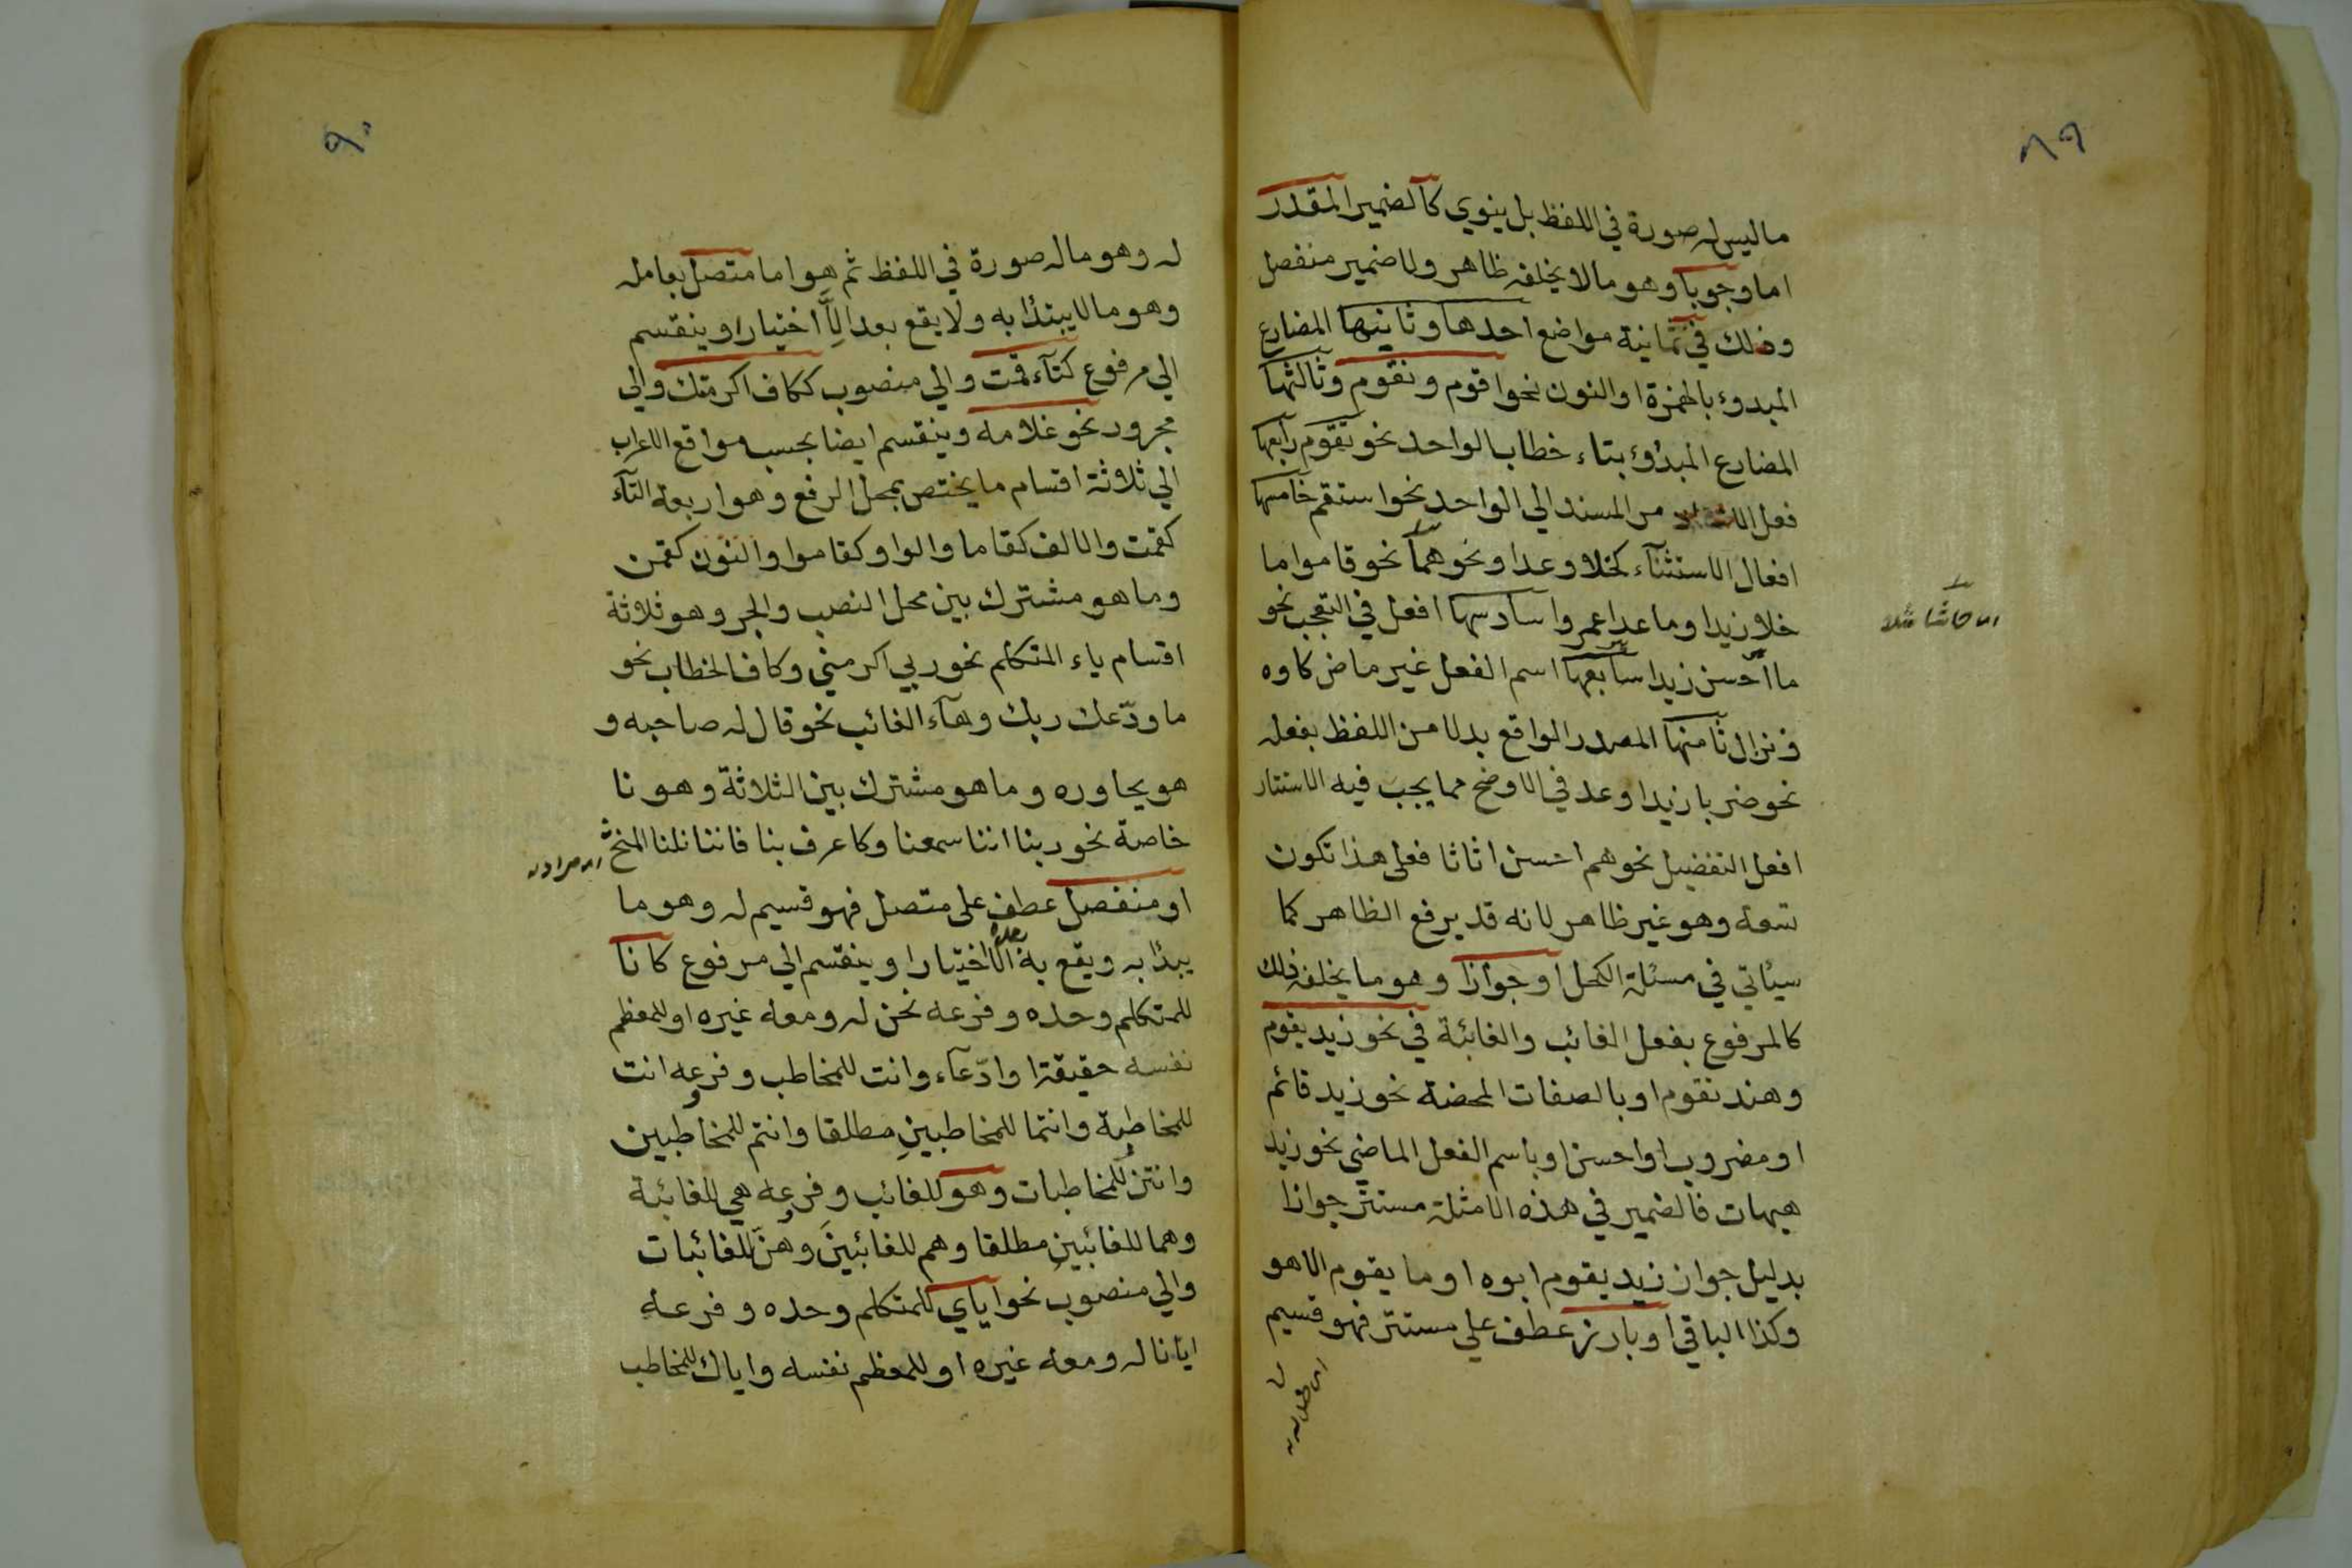 ٨٩
ما ليس له صورة في اللفظ بل ينوي كالضمير المقدر
اما وجوبا وهو ما لا يخلفه ظاهر ولا ضمير منفصل
وذلك في ثمانية مواضع احدها وثانيها المضارع
المبدوء بالهمزة او النون نحو اقوم ونقوم وثالثها
المضارع المبدوء بتاء خطاب الواحد نحو تقوم رابعها
فعل من المسند الي الواحد نحو استقم خامسها
افعال الاستثناء كخلا وعدا ونحوهما نحو قاموا ما
خلا زيدا وما عدا عمروا سادسها افعل في التعجب نحو
ما احسن زيدا سابعها اسم الفعل غير ماض كاوه
ونزال ثامنها المصدر الواقع بدلا من اللفظ بفعله
نحو ضربا زيدا وعد في الاوضح مما يجب فيه الاستتار
افعل التفضيل نحو هم احسن اثاثا فعلي هذا تكون
تسعة وهو غير ظاهر لانه قد يرفع الظاهر كما
سيئاتي في مسئلة الكحل او جوازا وهو ما يخلفه ذلك
كالمرفوع بفعل الغائب والغائبة في نحو زيد يقوم
وهند تقوم او بالصفات المحضة نحو زيد قائم
او مضروب او احسن او باسم الفعل الماضي نحو زيد
هيهات فالضمير في هذه الامثلة مستتر جوازا
بدليل جواز زيد يقوم ابوه او ما يقوم الا هو
وكذا الباقي او بارز عطف علي مستتر فهو قسيم
حاشا
٩٠
له وهو ما له صورة في اللفظ ثم هو اما متصل بعامله
وهو ما لا يبتدأ به ولا يقع بعد الا اختيارا وينقسم
الي مرفوع كتآء قمت والي منصوب ككاف اكرمتك والي
مجرور نحو غلامه وينقسم ايضا بحسب مواقع الاعراب
الي ثلاثة اقسام ما يختص بمحل الرفع وهو اربعة التآء
كقمت والالف كقاما والواو كقاموا والنون كقمن
وما هو مشترك بين محل النصب والجر وهو ثلاثة
اقسام ياء المتكلم نحو ربي اكرمني وكاف الخطاب نحو
ما ودّعك ربك وهآء الغائب نحو قال له صاحبه و
هو يحاوره وما هو مشترك بين الثلاثة وهو نا
خاصة نحو ربنا اننا سمعنا وكاعرف بنا فاننا نلنا المنح
او منفصل عطف علي متصل فهو قسيم له وهو ما
يبدأ به ويقع بعد الا اختيارا وينقسم الي مرفوع كانا
للمتكلم وحده وفرعه نحن له ومعه غيره او للمعظم
نفسه حقيقة او ادّعآء وانت للمخاطب وفرعه انت
للمخاطبة وانتما للمخاطبينِ مطلقا وانتم للمخاطبين
وانتن للمخاطبات وهو للغائب وفرعه هي للغائبة
وهما للغائبينِ مطلقا وهم للغائبينَ وهنّ للغائبات
والي منصوب نحو اياي للمتكلم وحده وفرعه
ايانا له ومعه غيره او للمعظم نفسه واياك للمخاطب